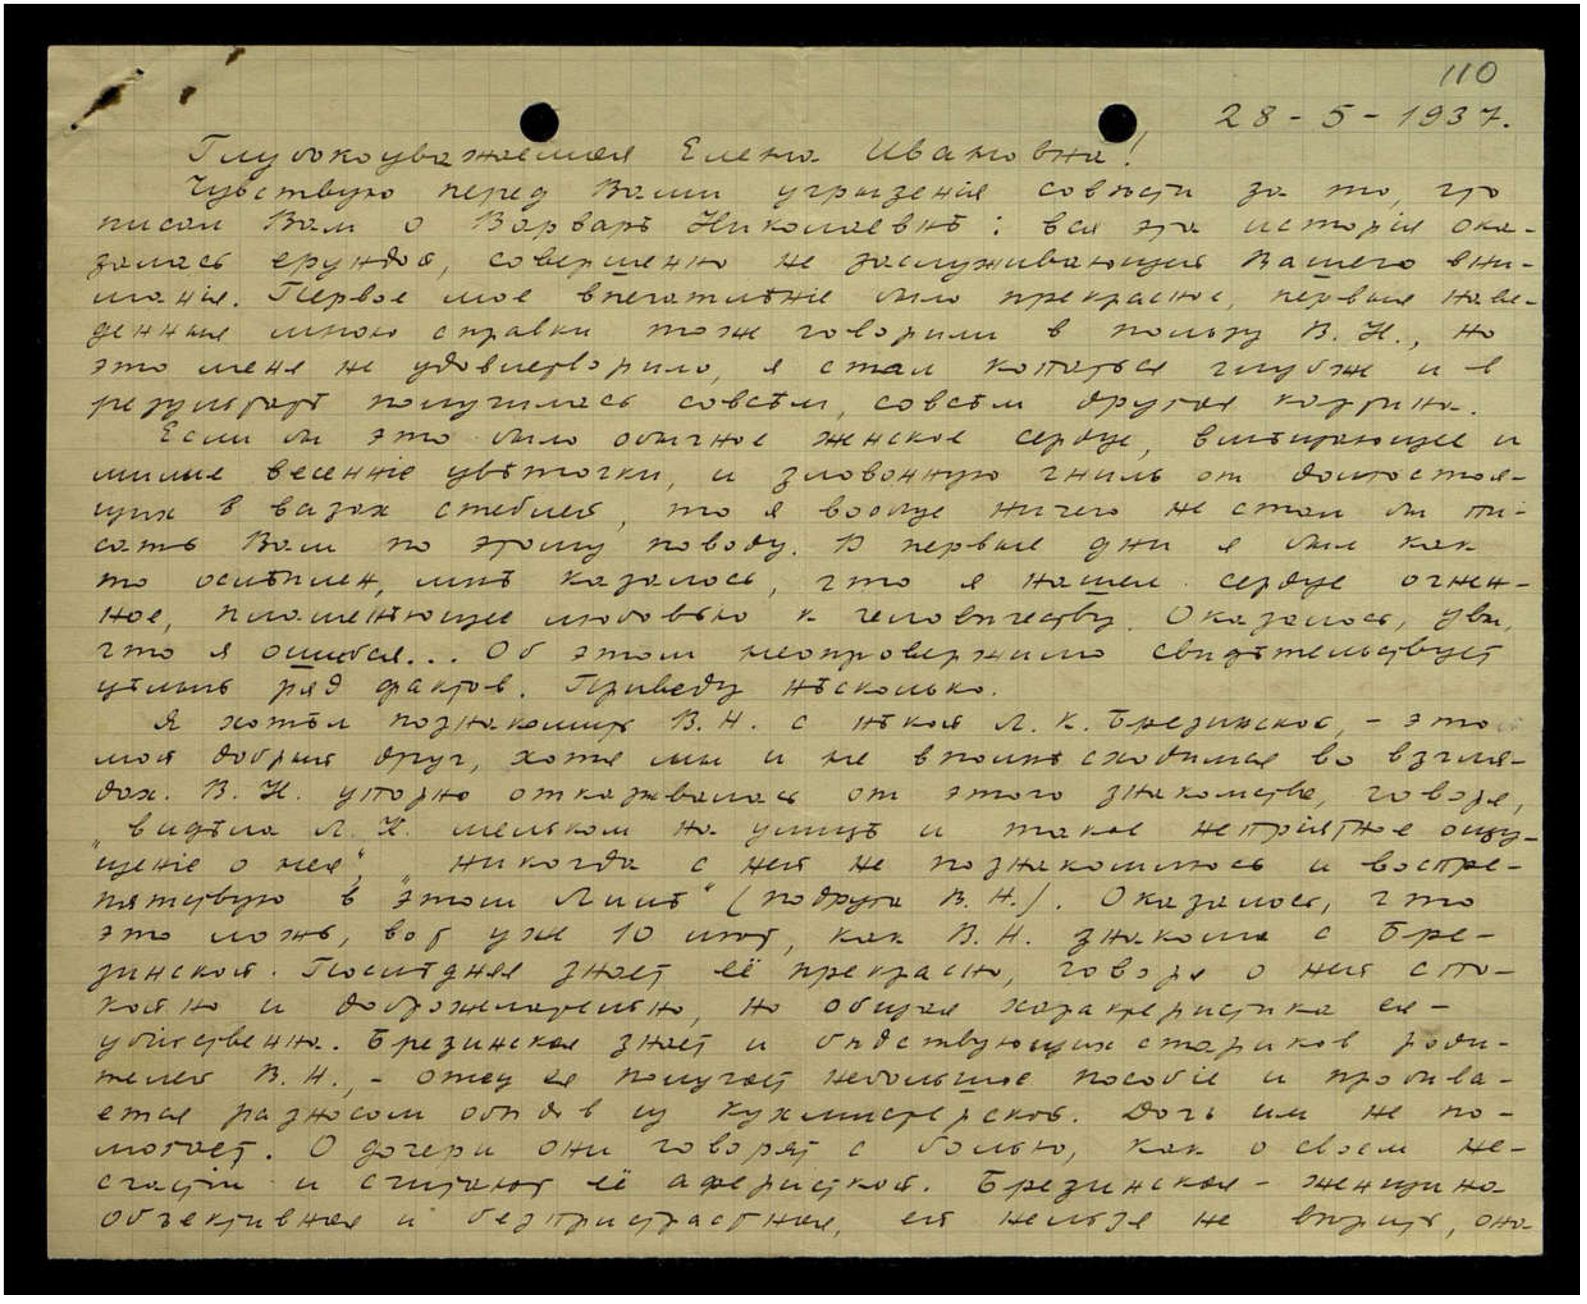 110
28 - 5 - 1937.
Глубокоуважаемая Елена Ивановна!
Чувствую перед Вами угрызенія совѣсти за то, что
писал Вам о Варварѣ Николаевнѣ: вся эта исторія ока-
залась ерундой, совершенно не заслуживающей Вашего вни-
манія. Первое мое впечатлѣніе было прекрасное, первыя наве-
денныя мною справки тоже говорили в пользу В. Н., но
это меня не удовлетворило, я стал копаться глубже и в
результатѣ получилась совсѣм, совсѣм другая картина.
Если бы это было обычное женское сердце, вмѣщающее и
милые весенніе цвѣточки, и зловонную гниль от долгостоя-
щих в вазах стеблей, то я вообще ничего не стал бы пи-
сать Вам по этому поводу. В первые дни я был как
то ослѣплен, мнѣ казалось, что я нашел сердце огнен-
ное, пламенѣющее любовью к человѣчеству. Оказалось, увы,
что я ошибся... Об этом неопровержимо свидѣтельствует
цѣлый ряд фактов. Приведу нѣсколько.
Я хотѣл познакомить В. Н. с нѣкой Л. К. Брезинской, - это
мой добрый друг, хотя мы и не вполнѣ сходимся во взгля-
дах. В. Н. упорно отказывалась от этого знакомства, говоря,
"видѣла Л. К. мельком на улицѣ и такое непріятное ощу-
щеніе о ней", "никогда с ней не познакомлюсь и воспре-
пятствую в этом Лилѣ" (подруга В. Н.). Оказалось, что
это ложь, вот уже 10 лѣт, как В. Н. знакома с Бре-
зинской. Послѣдняя знает её прекрасно, говоря о ней спо-
койно и доброжелательно, но общая характеристика ея -
убійственна. Брезинская знает и бѣдствующих стариков роди-
телей В. Н., - отец ея получает небольшое пособіе и пробива-
ется разносом обѣдов из кухмистерской. Дочь им не по-
могает. О дочери они говорят с болью, как о своем не-
счастіи и считают её аферисткой. Брезинская - женщина
объективная и безпристрастная, ей нельзя не вѣрить, она